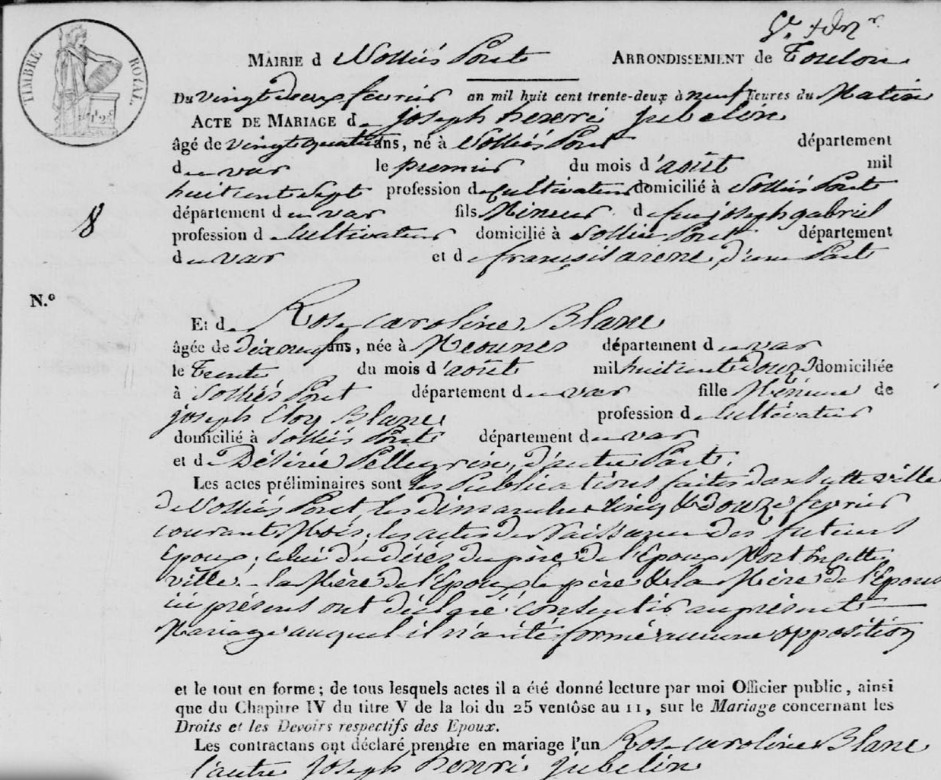 TIMBRE ROYAL.
MAIRIE d Solliés Pont ARRONDISSEMENT de Toulon
Du vingt deux fevrier an mil huit cent trente-deux à neuf heures du Matin
ACTE DE MARIAGE de joseph henri jubelin
âgé de vingt quatre ans, né à Solliés Pont département
du var le premier du mois d'août mil
huit cent sept profession de Cultivateur domicilié à Solliés Pont
département du var fils Mineur de feu joseph gabriel
profession de Cultivateur domicilié à Solliés Pont département
du var et de françoise arene, d'une Part
8
N.°
Et de Rose caroline Blanc
âgée de dix neuf ans, née à Meounes département du var
le Trente du mois d'août mil huit cent douze domiciliée
à Solliés Pont département du var fille Mineure de
joseph Eloy Blanc profession de Cultivateur
domicilié à Solliés Pont département du var
et de Désirée Pellegrin, d'autre Part.
Les actes préliminaires sont les Publications faites dans cette ville
de Solliés Pont les dimanches cinq & douze fevrier
courant Mois; les actes de Naissance des futurs
Epoux; celui du décès du père de l'Epoux Mort en cette
ville. la Mère de l'Epoux le père & la Mère de l'Epouse
ici présent ont déclaré consentir au présent
Mariage auquel il n'a été formé aucune opposition
et le tout en forme; de tous lesquels actes il a été donné lecture par moi Officier public, ainsi
que du Chapitre IV du titre V de la loi du 25 ventôse au 11, sur le Mariage concernant les
Droits et les Devoirs respectifs des Epoux.
Les contractans ont déclaré prendre en mariage l'un Rose caroline Blanc
l'autre joseph henri jubelin